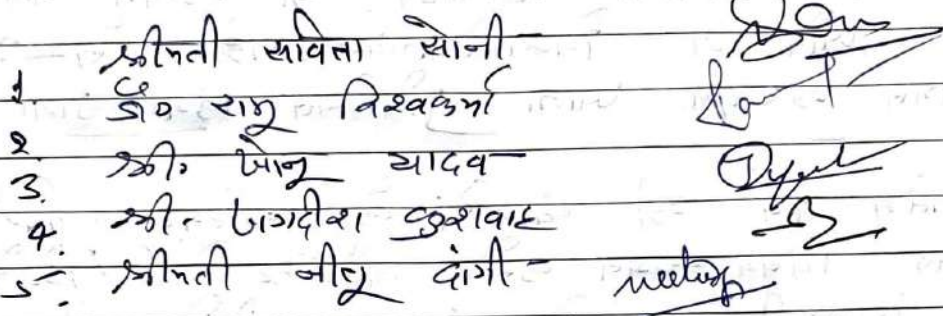 श्रीमती सविता सोनी
1. डॉ० रामू विश्वकर्मा
2.
3. श्री. सोनू यादव
4. श्री. जगदीश कुशवाह
5. श्रीमती नीतू दांगी